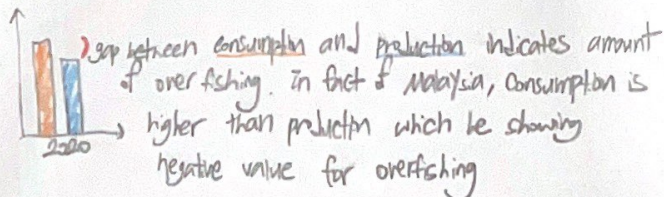 gap between consumption and production indicates amount
of over fishing. In fact of Malaysia, Consumption is
higher than production which be showing
negative value for overfishing
2020